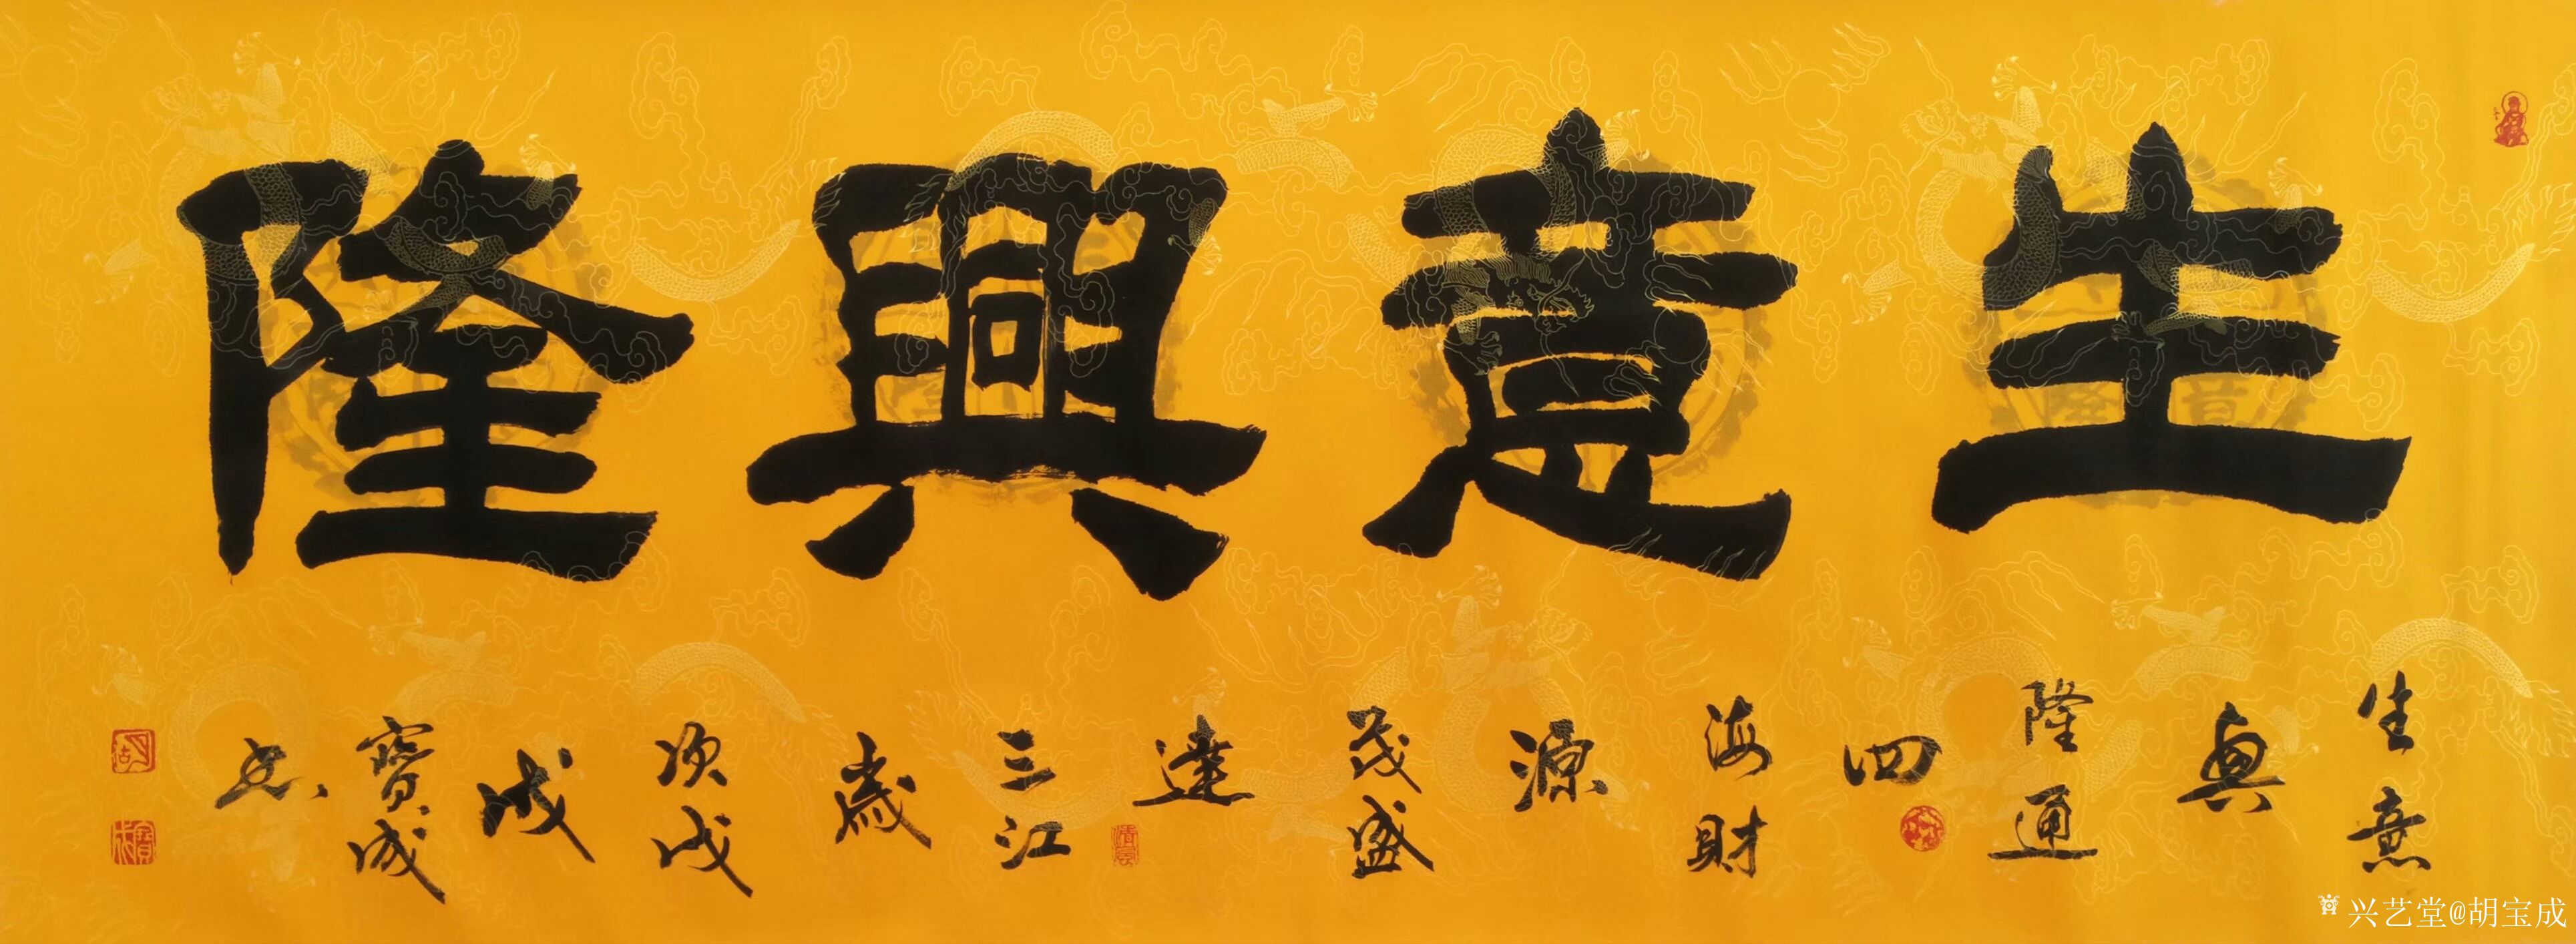 生意興隆
生意興隆通四海財源茂盛達三江歲次戊戌寶成書
兴艺堂@胡宝成